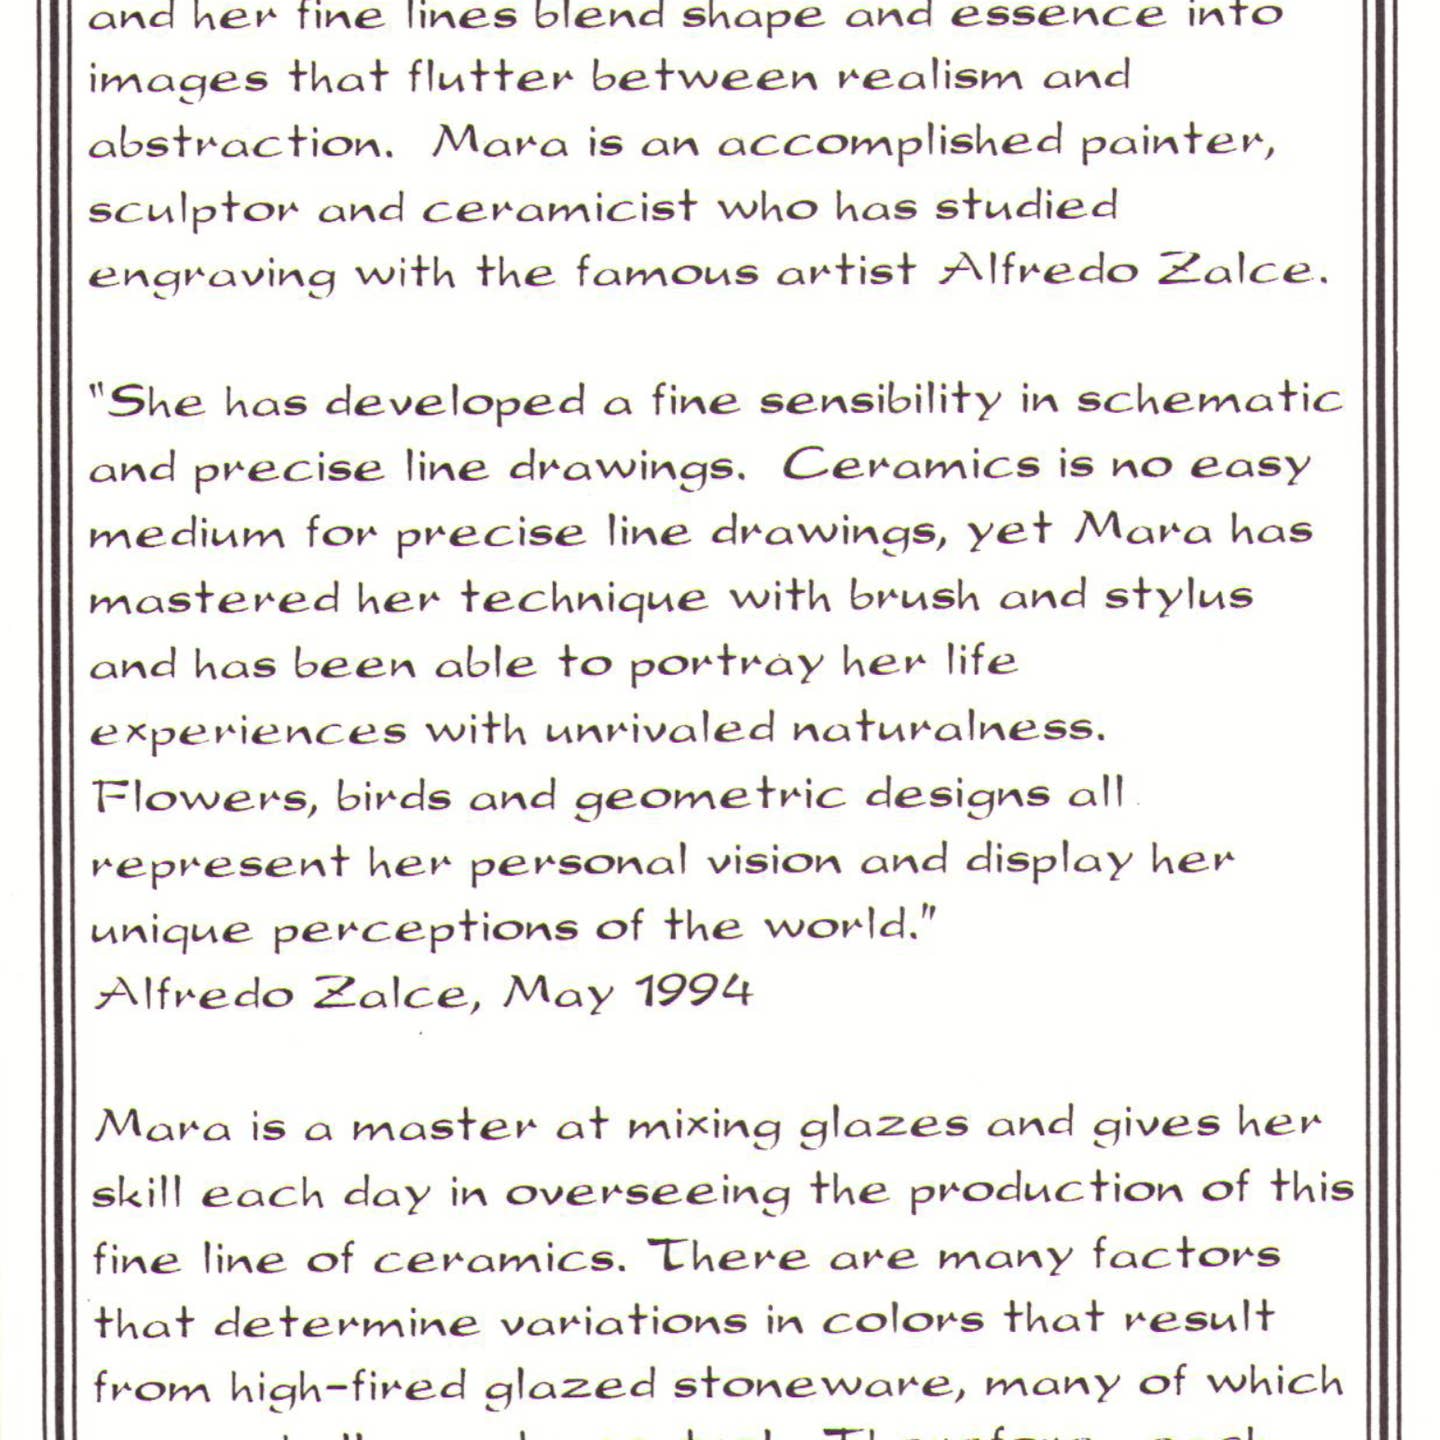 and her fine lines blend shape and essence into
images that flutter between realism and
abstraction.  Mara is an accomplished painter,
sculptor and ceramicist who has studied
engraving with the famous artist Alfredo Zalce.
"She has developed a fine sensibility in schematic
and precise line drawings.  Ceramics is no easy
medium for precise line drawings, yet Mara has
mastered her technique with brush and stylus
and has been able to portray her life
experiences with unrivaled naturalness.
Flowers, birds and geometric designs all
represent her personal vision and display her
unique perceptions of the world."
Alfredo Zalce, May 1994
Mara is a master at mixing glazes and gives her
skill each day in overseeing the production of this
fine line of ceramics. There are many factors
that determine variations in colors that result
from high-fired glazed stoneware, many of which